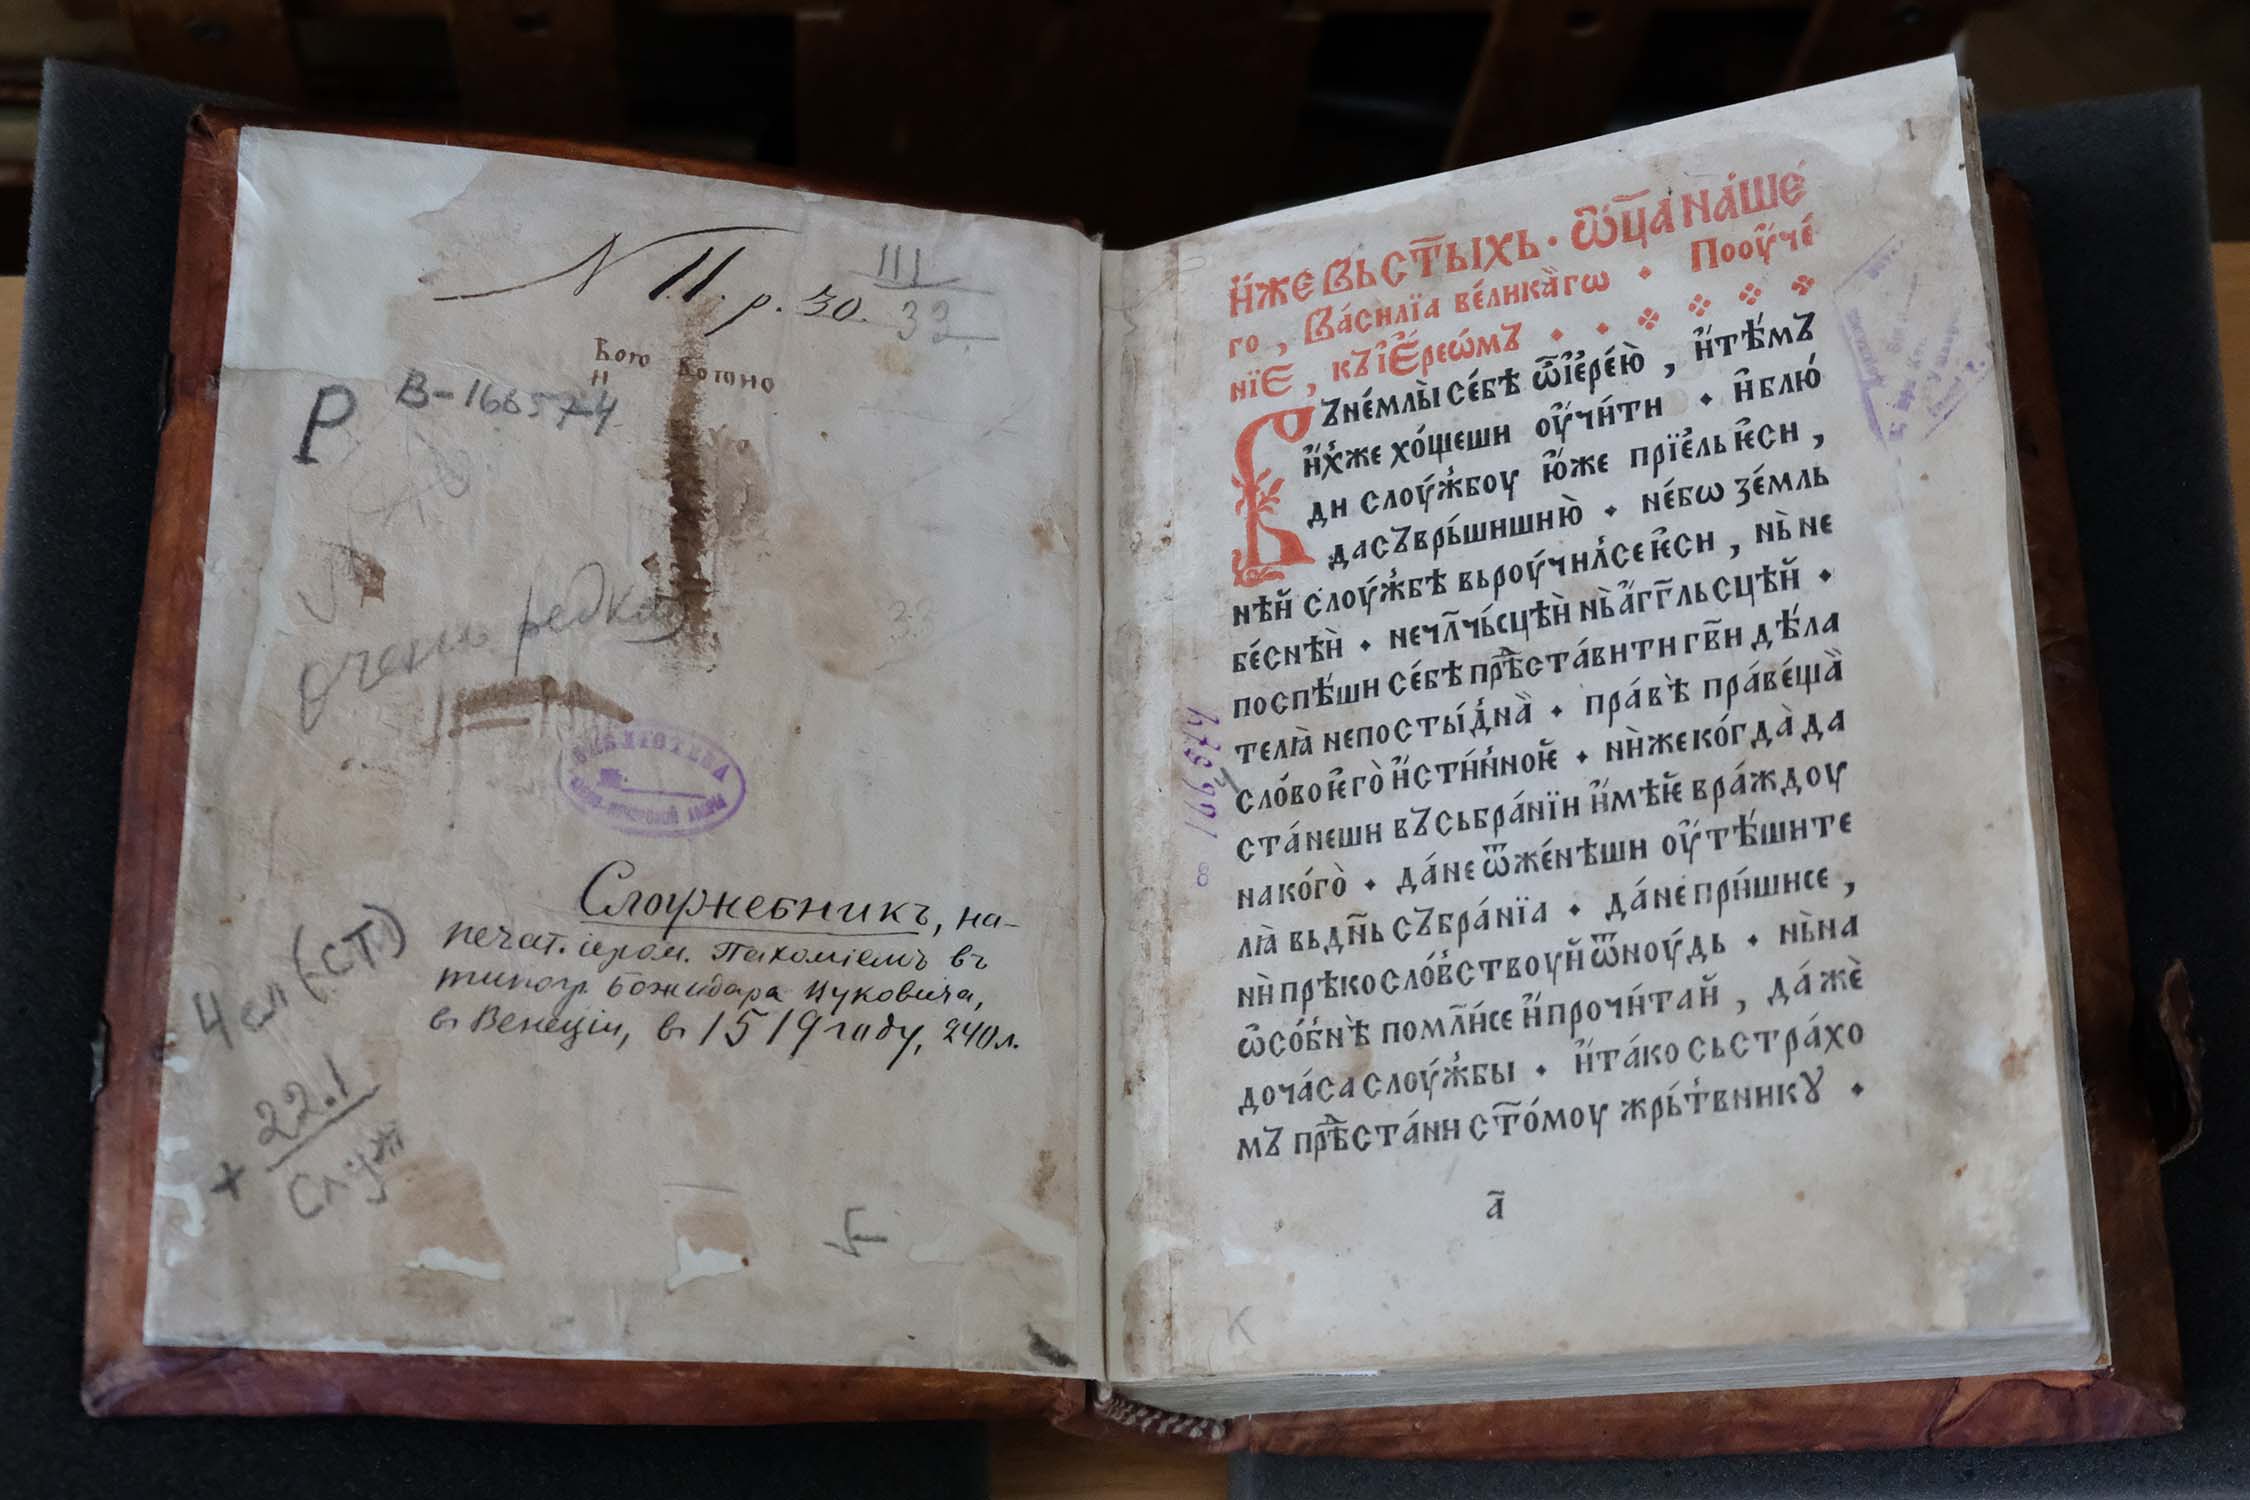 N II. р. 30.
III
33
Р В-166574
очень редкая
БИБЛІОТЕКА
Слоужебникъ, на-
печат. іером. Пахоміемъ въ
типогр. Божидара Вуковича,
въ Венеціи, въ 1519 году, 240 л.
4 сл (СТ)
22.1
+ Служ
И҆́же Вь ст҃ыхь · Ѿц҃а на́ше
го , Ва́силїа ве́лика̀гѡ · Пооу҆че́
нїе , къ і҆Е҆реѡ́мъ · ·
Въне́млы̀ се́бѣ ѽ і҆е҆ре́ю̀ , и҆ тѣ́мъ
и҆́хже хо́щеши оу҆чи́ти · и҆ блю́
ди слоу́жбоу ю҆́же прїе́ль ѥ҆си ,
да съврь́шиши ю̀ · не́бѡ зе́мль
нѣй слоу́жбѣ вьроу́чилсе ѥ҆си , нь̀ не
бе́снѣй · не чл҃чь́сцѣй нь̀ а҆́гг҃льсцѣй ·
поспѣ́ши се́бѣ прѣ́ста́вити гв҃и дѣ́ла
телꙗ̀ непосты́дна̀ · пра́вѣ пра́веща̀
сло́во ѥ҆го̀ и҆́стин́ноѥ · ни̇̀же ко́гда̀ да
ста́неши въ сьбра́нїи и҆мѣ́ѥ вра́ждоу
на ко́го̀ · да́ не ѿже́нѣши оу҆тѣ́шите
лꙗ̀ вь дн҃ь събра́нїа · да́ не при́шисе ,
ни̇̀ прѣкосло́вствоуй ѿноу́дь · нь̀ на
ѡ҆со́бнѣ̀ помл҃и́се и҆ прочи́тай , да́жѐ
до ча́са слоу́жбы · и҆ та́ко сь стра́хо
мъ прѣ́ста́ни ст҃о́моу жрь́твникꙋ ·
а҃
К